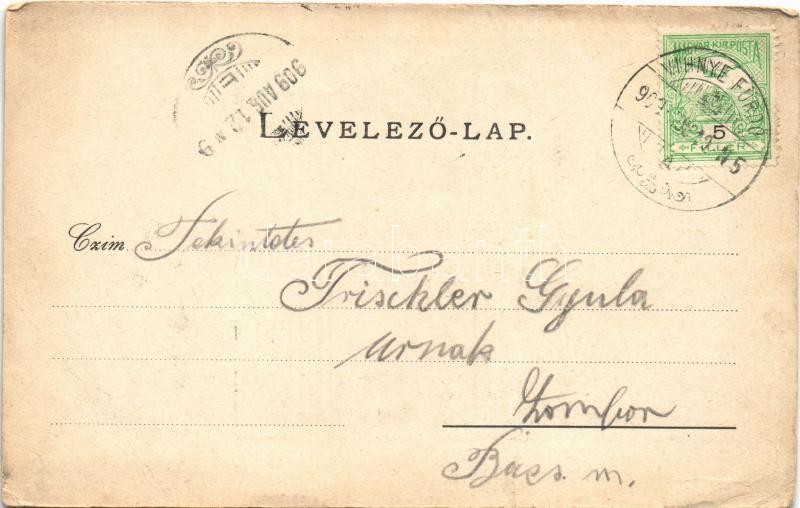 MAGYAR KIR. POSTA
VIHNYE FÜRDŐ
5
FILLÉR
909 AUG 12 N 9
LEVELEZŐ-LAP.
Czim Tekintetes
Trischler Gyula
urnak
Zombor
Bács m.